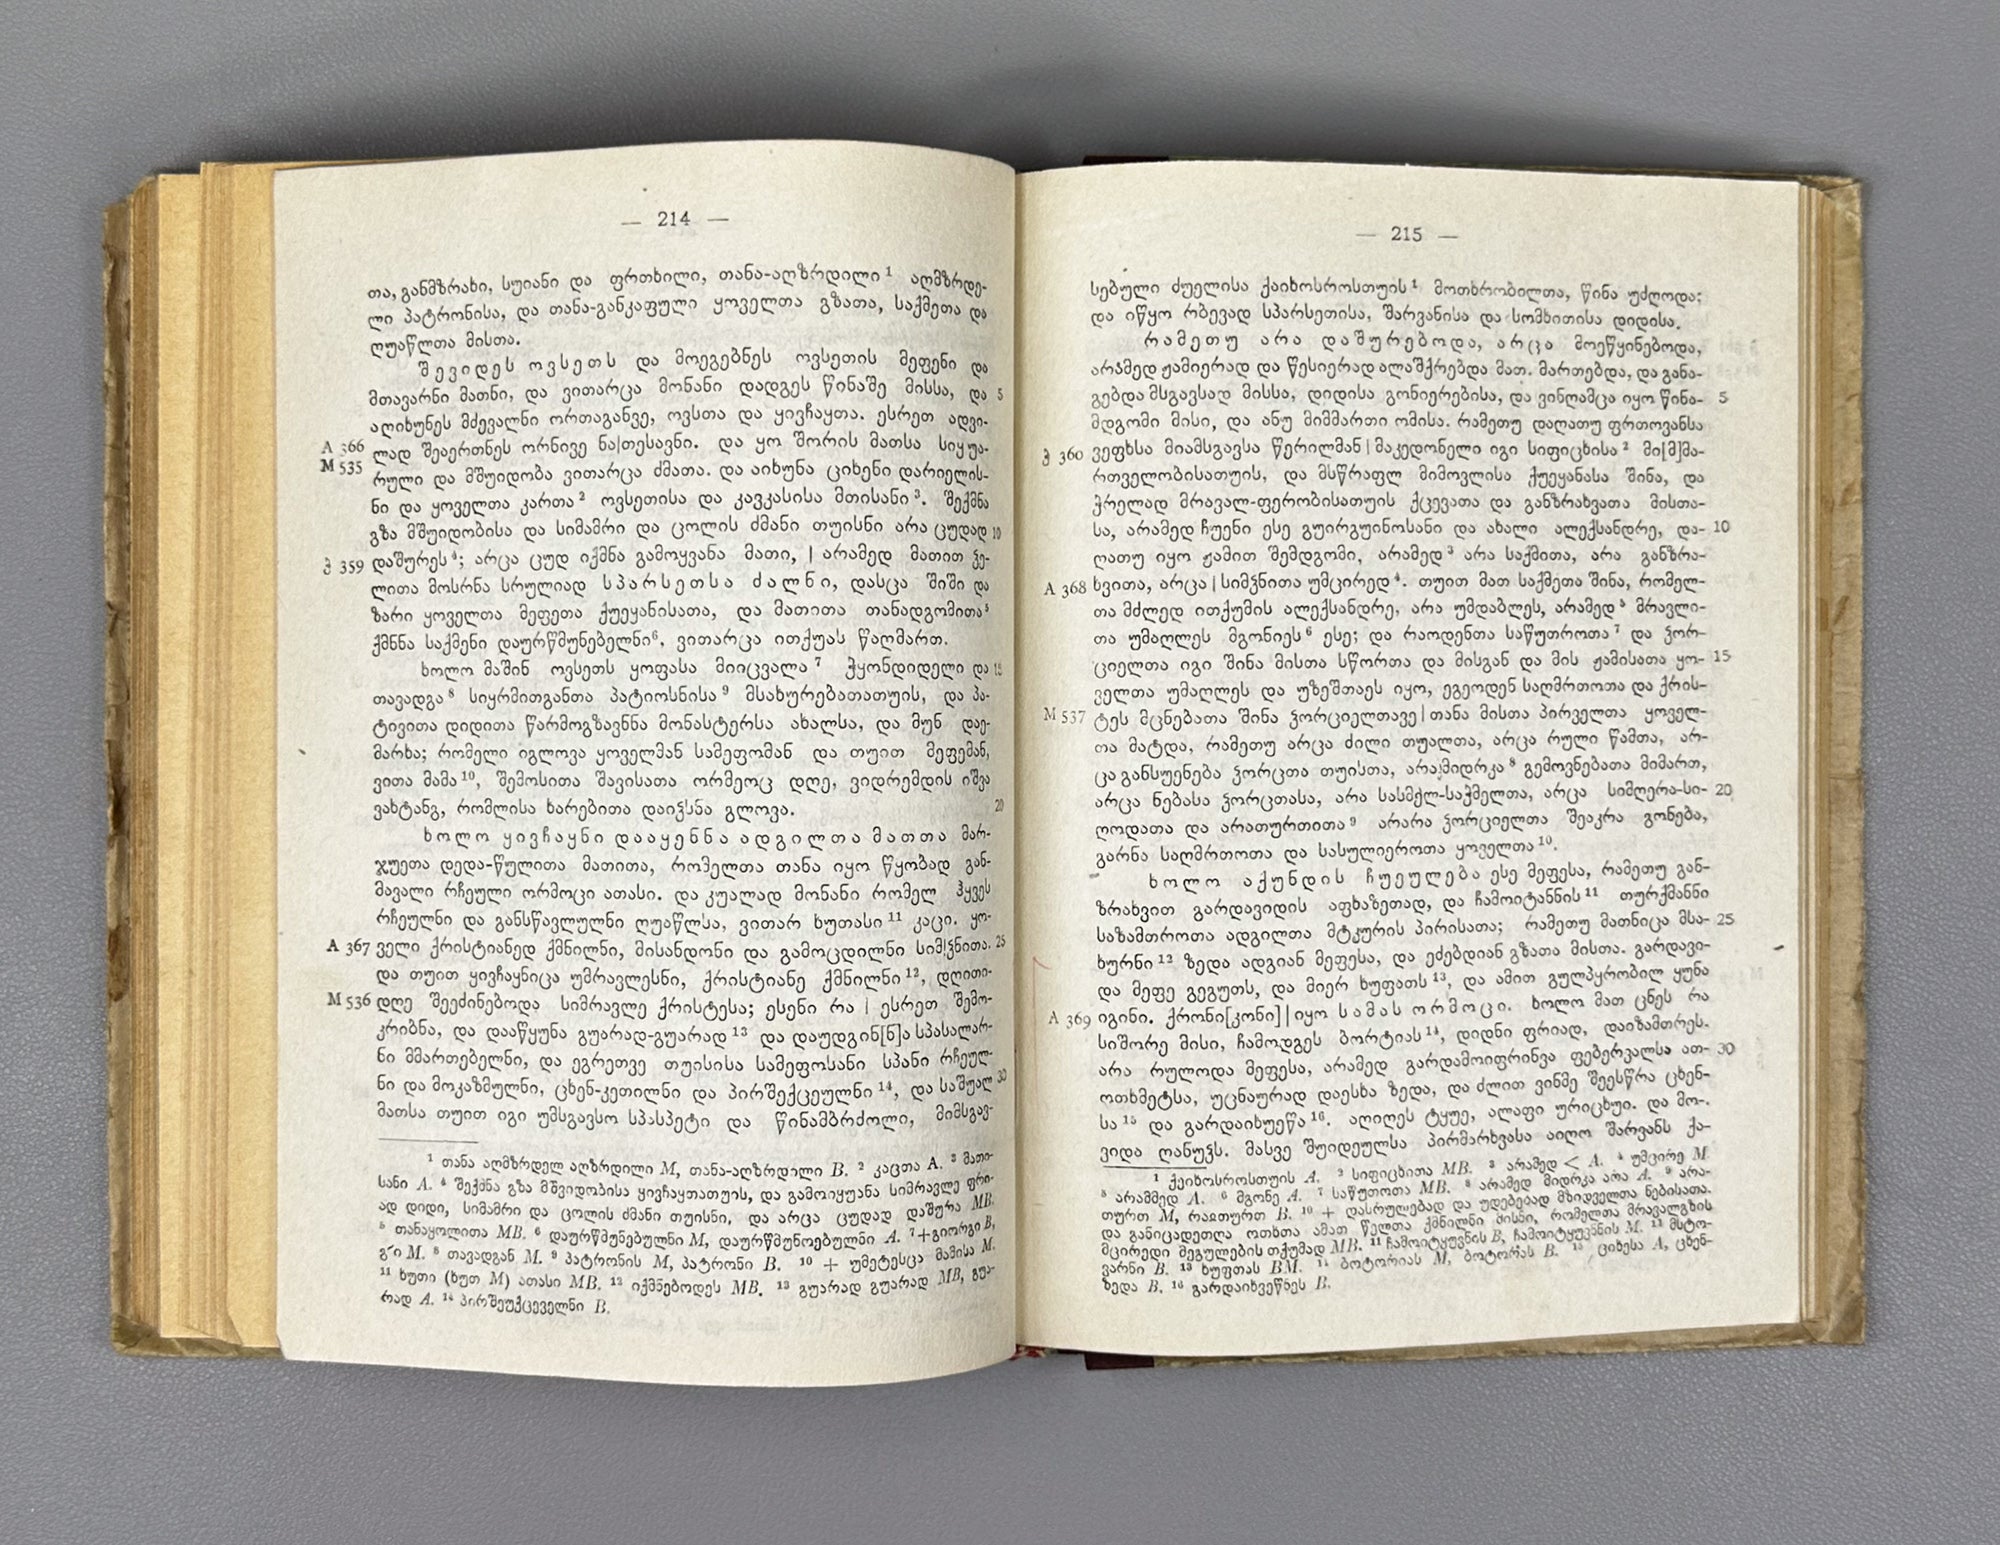 — 214 —
თა, განმზრახი, სჳიანი და ფრთხილი, თანა-აღზრდილი¹ აღმზრდე-
ლი პატრონისა, და თანა-განკაფული ყოველთა გზათა, საქმეთა და
ღუაწლთა მისთა.
შევიდეს ოვსეთს და მოეგებნეს ოვსეთის მეფენი და
მთავარნი მათნი, და ვითარცა მონანი დადგეს წინაშე მისსა, და 5
აღიხუნეს მძევალნი ორთაგანვე, ოვსთა და ყივჩაყთა. ესრეთ ადვი-
A 366 ლად შეაერთნეს ორნივე ნა|თესავნი. და ყო შორის მათსა სიყუა-
M 535 რული და მშუიდობა ვითარცა ძმათა. და აიხუნა ციხენი დარიელის-
ნი და ყოველთა კართა² ოვსეთისა და კავკასისა მთისანი³. შექმნა
გზა მშუიდობისა და სიმამრი და ცოლის ძმანი თუისნი არა ცუდად 10
ჭ 359 დაშურეს⁴; არცა ცუდ იქმნა გამოყვანა მათი, | არამედ მათით ჴე-
ლითა მოსრნა სრულიად სპარსეთსა ძალნი, დასცა შიში და
ზარი ყოველთა მეფეთა ქუეყანისათა, და მათითა თანადგომითა⁵
ქმნნა საქმენი დაურწმუნებელნი⁶, ვითარცა ითქუას წაღმართ.
ხოლო მაშინ ოვსეთს ყოფასა მიიცვალა⁷ ჭყონდიდელი და 15
თავადგა⁸ სიყრმითგანთა პატიოსნისა⁹ მსახურებათათუის, და პა-
ტივითა დიდითა წარმოგზავნნა მონასტერსა ახალსა, და მუნ დაე-
მარხა; რომელი იგლოვა ყოველმან სამეფომან და თუით მეფემან,
ვითა მამა¹⁰, შემოსითა შავისათა ორმეოც დღე, ვიდრემდის იშვა
ვახტანგ, რომლისა ხარებითა დაიჴსნა გლოვა. 20
ხოლო ყივჩაყნი დააყენნა ადგილთა მათთა მარ-
ჯუეთა დედა-წულითა მათითა, რომელთა თანა იყო წყობად გან-
მავალი რჩეული ორმოცი ათასი. და კუალად მონანი რომელ ჰყვეს
რჩეულნი და განსწავლულნი ღუაწლსა, ვითარ ხუთასი¹¹ კაცი. ყო-
A 367 ველი ქრისტიანედ ქმნილნი, მისანდონი და გამოცდილნი სიმ|ჴნითა. 25
და თუით ყივჩაყნიცა უმრავლესნი, ქრისტიანე ქმნილნი¹², დღითი-
M 536 დღე შეეძინებოდა სიმრავლე ქრისტესა; ესენი რა | ესრეთ შემო-
კრიბნა, და დააწყუნა გუარად-გუარად¹³ და დაუდგინ[ნ]ა სპასალარ-
ნი მმართებელნი, და ეგრეთვე თუისისა სამეფოსანი სპანი რჩეულ-
ნი და მოკაზმულნი, ცხენ-კეთილნი და პირშექცეულნი¹⁴, და საშუალ 30
მათსა თუით იგი უმსგავსო სპასპეტი და წინამბრძოლი, მიმსგავ-
¹ თანა აღმზრდელ აღზრდილი M, თანა-აღზრდილი B. ² კაცთა A. ³ მათი-
სანი A. ⁴ შექმნა გზა მშვიდობისა ყივჩაყთათუის, და გამოიყუანა სიმრავლე ფრი-
ად დიდი, სიმამრი და ცოლის ძმანი თუისნი, და არცა ცუდად დაშურა MB.
⁵ თანაყოლითა MB. ⁶ დაურწმუნებულნი M, დაურწმუნოებულნი A. ⁷+გიორგი B,
გ~ი M. ⁸ თავადგან M. ⁹ პატრონის M, პატრონი B. ¹⁰ + უმეტესცა მამისა M.
¹¹ ხუთი (ხუთ M) ათასი MB. ¹² იქმნებოდეს MB. ¹³ გუარად გუარად MB, გუა-
რად A. ¹⁴ პირშეუქცეველნი B.
— 215 —
სებული ძუელისა ქაიხოსროსთუის¹ მოთხრობილთა, წინა უძღოდა;
და იწყო რბევად სპარსეთისა, შარვანისა და სომხითისა დიდისა.
რამეთუ არა დაშურებოდა, არცა მოეწყინებოდა,
არამედ ჟამიერად და წესიერად ალაშქრებდა მათ. მართებდა, და განა-
გებდა მსგავსად მისსა, დიდისა გონიერებისა, და ვინღამცა იყო წინა- 5
მდგომი მისი, და ანუ მიმმართი ომისა. რამეთუ დაღათუ ფრთოვანსა
ჭ 360 ვეფხსა მიამსგავსა წერილმან | მაკედონელი იგი სიფიცხისა² მი[მ]მა-
რთველობისათუის, და მსწრაფლ მიმოვლისა ქუეყანასა შინა, და
ჭრელად მრავალ-ფერობისათუის ქცევათა და განზრახვათა მისთა-
სა, არამედ ჩუენი ესე გუირგუინოსანი და ახალი ალექსანდრე, და- 10
ღათუ იყო ჟამით შემდგომი, არამედ³ არა საქმითა, არა განზრა-
A 368 ხვითა, არცა | სიმჴნითა უმცირედ⁴. თუით მათ საქმეთა შინა, რომელ-
თა მძლედ ითქუმის ალექსანდრე, არა უმდაბლეს, არამედ⁵ მრავლი-
თა უმაღლეს მგონიეს⁶ ესე; და რაოდენთა საწუთროთა⁷ და ჴორ-
ციელთა იგი შინა მისთა სწორთა და მისგან და მის ჟამისათა ყო- 15
ველთა უმაღლეს და უზეშთაეს იყო, ეგეოდენ საღმრთოთა და ქრის-
M 537 ტეს მცნებათა შინა ჴორციელთავე | თანა მისთა პირველთა ყოველ-
თა მატდა, რამეთუ არცა ძილი თუალთა, არცა რული წამთა, არ-
ცა განსუენება ჴორცთა თუისთა, არა მიდრკა⁸ გემოვნებათა მიმართ,
არცა ნებასა ჴორცთასა, არა სასმელ-საჭმელთა, არცა სიმღერა-სი- 20
ღოდათა და არათურთითა⁹ არარა ჴორციელთა შეაკრა გონება,
გარნა საღმრთოთა და სასულიეროთა ყოველთა¹⁰.
ხოლო აქუნდის ჩუეულება ესე მეფესა, რამეთუ გან-
ზრახვით გარდავიდის აფხაზეთად, და ჩამოიტანნის¹¹ თურქმანნი
საზამთროთა ადგილთა მტკურის პირისათა; რამეთუ მათნიცა მსა- 25
ხურნი¹² ზედა ადგიან მეფესა, და ეძებდიან გზათა მისთა. გარდავი-
და მეფე გეგუთს, და მიერ ხუფათს¹³, და ამით გულპყრობილ ყუნა
A 369 იგინი. ქრონი[კონი] | იყო სამას ორმოცი. ხოლო მათ ცნეს რა
სიშორე მისი, ჩამოდგეს ბორტიას¹⁴, დიდნი ფრიად, დაიზამთრეს.
არა რულოდა მეფესა, არამედ გარდამოიფრინვა ფებერვალსა ათ- 30
ოთხმეტსა, უცნაურად დაესხა ზედა, და ძლით ვინმე შეესწრა ცხენ-
სა¹⁵ და გარდაიხუეწა¹⁶. აღიღეს ტყუე, ალაფი ურიცხუი. და მო-
ვიდა ღანუჴს. მასვე შუიდეულსა პირმარხვასა აიღო შარვანს ქა-
¹ ქეიხოსროსთუის A. ² სიფიცხითა MB. ³ არამედ < A. ⁴ უმცირე M.
⁵ არამმედ A. ⁶ მგონე A. ⁷ საწუთოთა MB. ⁸ არამედ მიდრკა არა A. ⁹ არა-
თურთ M, რაჲთურთ B. ¹⁰ + დასრულებად და უდებებად მზიდველთა ნებისათა.
და განიცადეთღა ოთხთა ამათ წელთა ქმნილნი მისნი, რომელთა მრავალგხის
მცირედი შეგულების თქუმად MB. ¹¹ ჩამოიტყუვნის B, ჩამოიტყუვნნის M. ¹² მსტო-
ვარნი B. ¹³ ხუფთას BM. ¹⁴ ბოტორიას M, ბოტორას B. ¹⁵ ციხესა A, ცხენ-
ზედა B. ¹⁶ გარდაიხვეწნეს B.